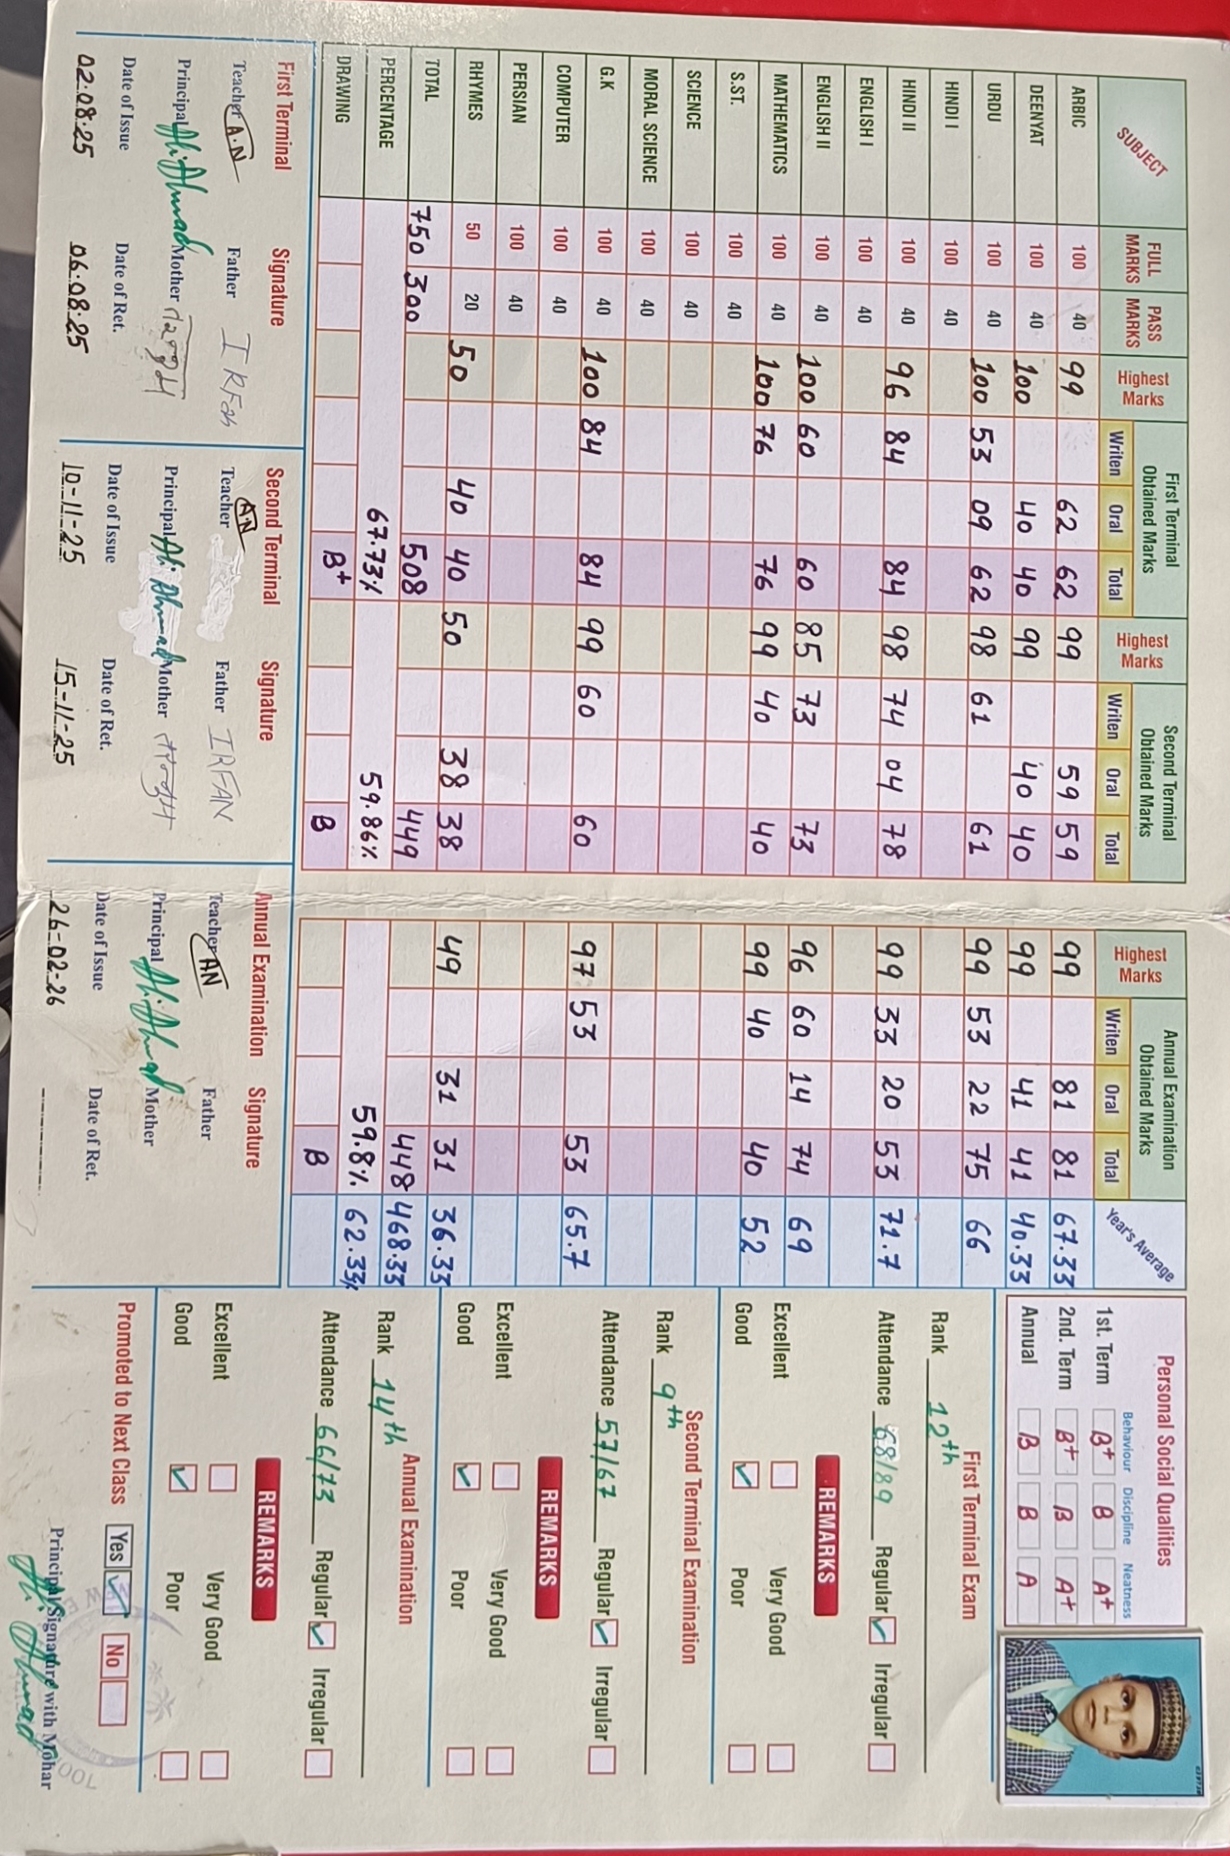 SUBJECT FULL MARKS PASS MARKS Highest Marks First Terminal Obtained Marks Writen Oral Total Highest Marks Second Terminal Obtained Marks Writen Oral Total Highest Marks Annual Examination Obtained Marks Writen Oral Total Year's Average
ARBIC 100 40 99 62 62 99 59 59 99 81 81 67.33
DEENYAT 100 40 100 40 40 99 40 40 99 41 41 40.33
URDU 100 40 100 53 09 62 98 61 61 99 53 22 75 66
HINDI I 100 40
HINDI II 100 40 96 84 84 98 74 04 78 99 33 20 53 71.7
ENGLISH I 100 40
ENGLISH II 100 40 100 60 60 85 73 73 96 60 14 74 69
MATHEMATICS 100 40 100 76 76 99 40 40 99 40 40 52
S.ST. 100 40
SCIENCE 100 40
MORAL SCIENCE 100 40
G.K 100 40 100 84 84 99 60 60 97 53 53 65.7
COMPUTER 100 40
PERSIAN 100 40
RHYMES 50 20 50 40 40 50 38 38 49 31 31 36.33
TOTAL 750 300 508 449 448 468.33
PERCENTAGE 67.73% 59.86% 59.8% 62.33%
DRAWING B+ B B
First Terminal Signature
Teacher A.N Father IRFan
Principal Ali Ahmad Mother
Date of Issue Date of Ret.
02.08.25 06.08.25
Second Terminal Signature
Teacher AN Father IRFAN
Principal Ali Ahmad Mother
Date of Issue Date of Ret.
10-11-25 15-11-25
Annual Examination Signature
Teacher AN Father
Principal Ali Ahmad Mother
Date of Issue Date of Ret.
26-02-26
Personal Social Qualities
Behaviour Discipline Neatness
1st. Term B+ B A+
2nd. Term B+ B A+
Annual B B A
First Terminal Exam
Rank 12th
Attendance 68/89 Regular Irregular
REMARKS
Excellent Very Good
Good Poor
Second Terminal Examination
Rank 9th
Attendance 57/67 Regular Irregular
REMARKS
Excellent Very Good
Good Poor
Annual Examination
Rank 14th
Attendance 66/73 Regular Irregular
REMARKS
Excellent Very Good
Good Poor
Promoted to Next Class Yes No
Principal Signature with Mohar
Ali Ahmad